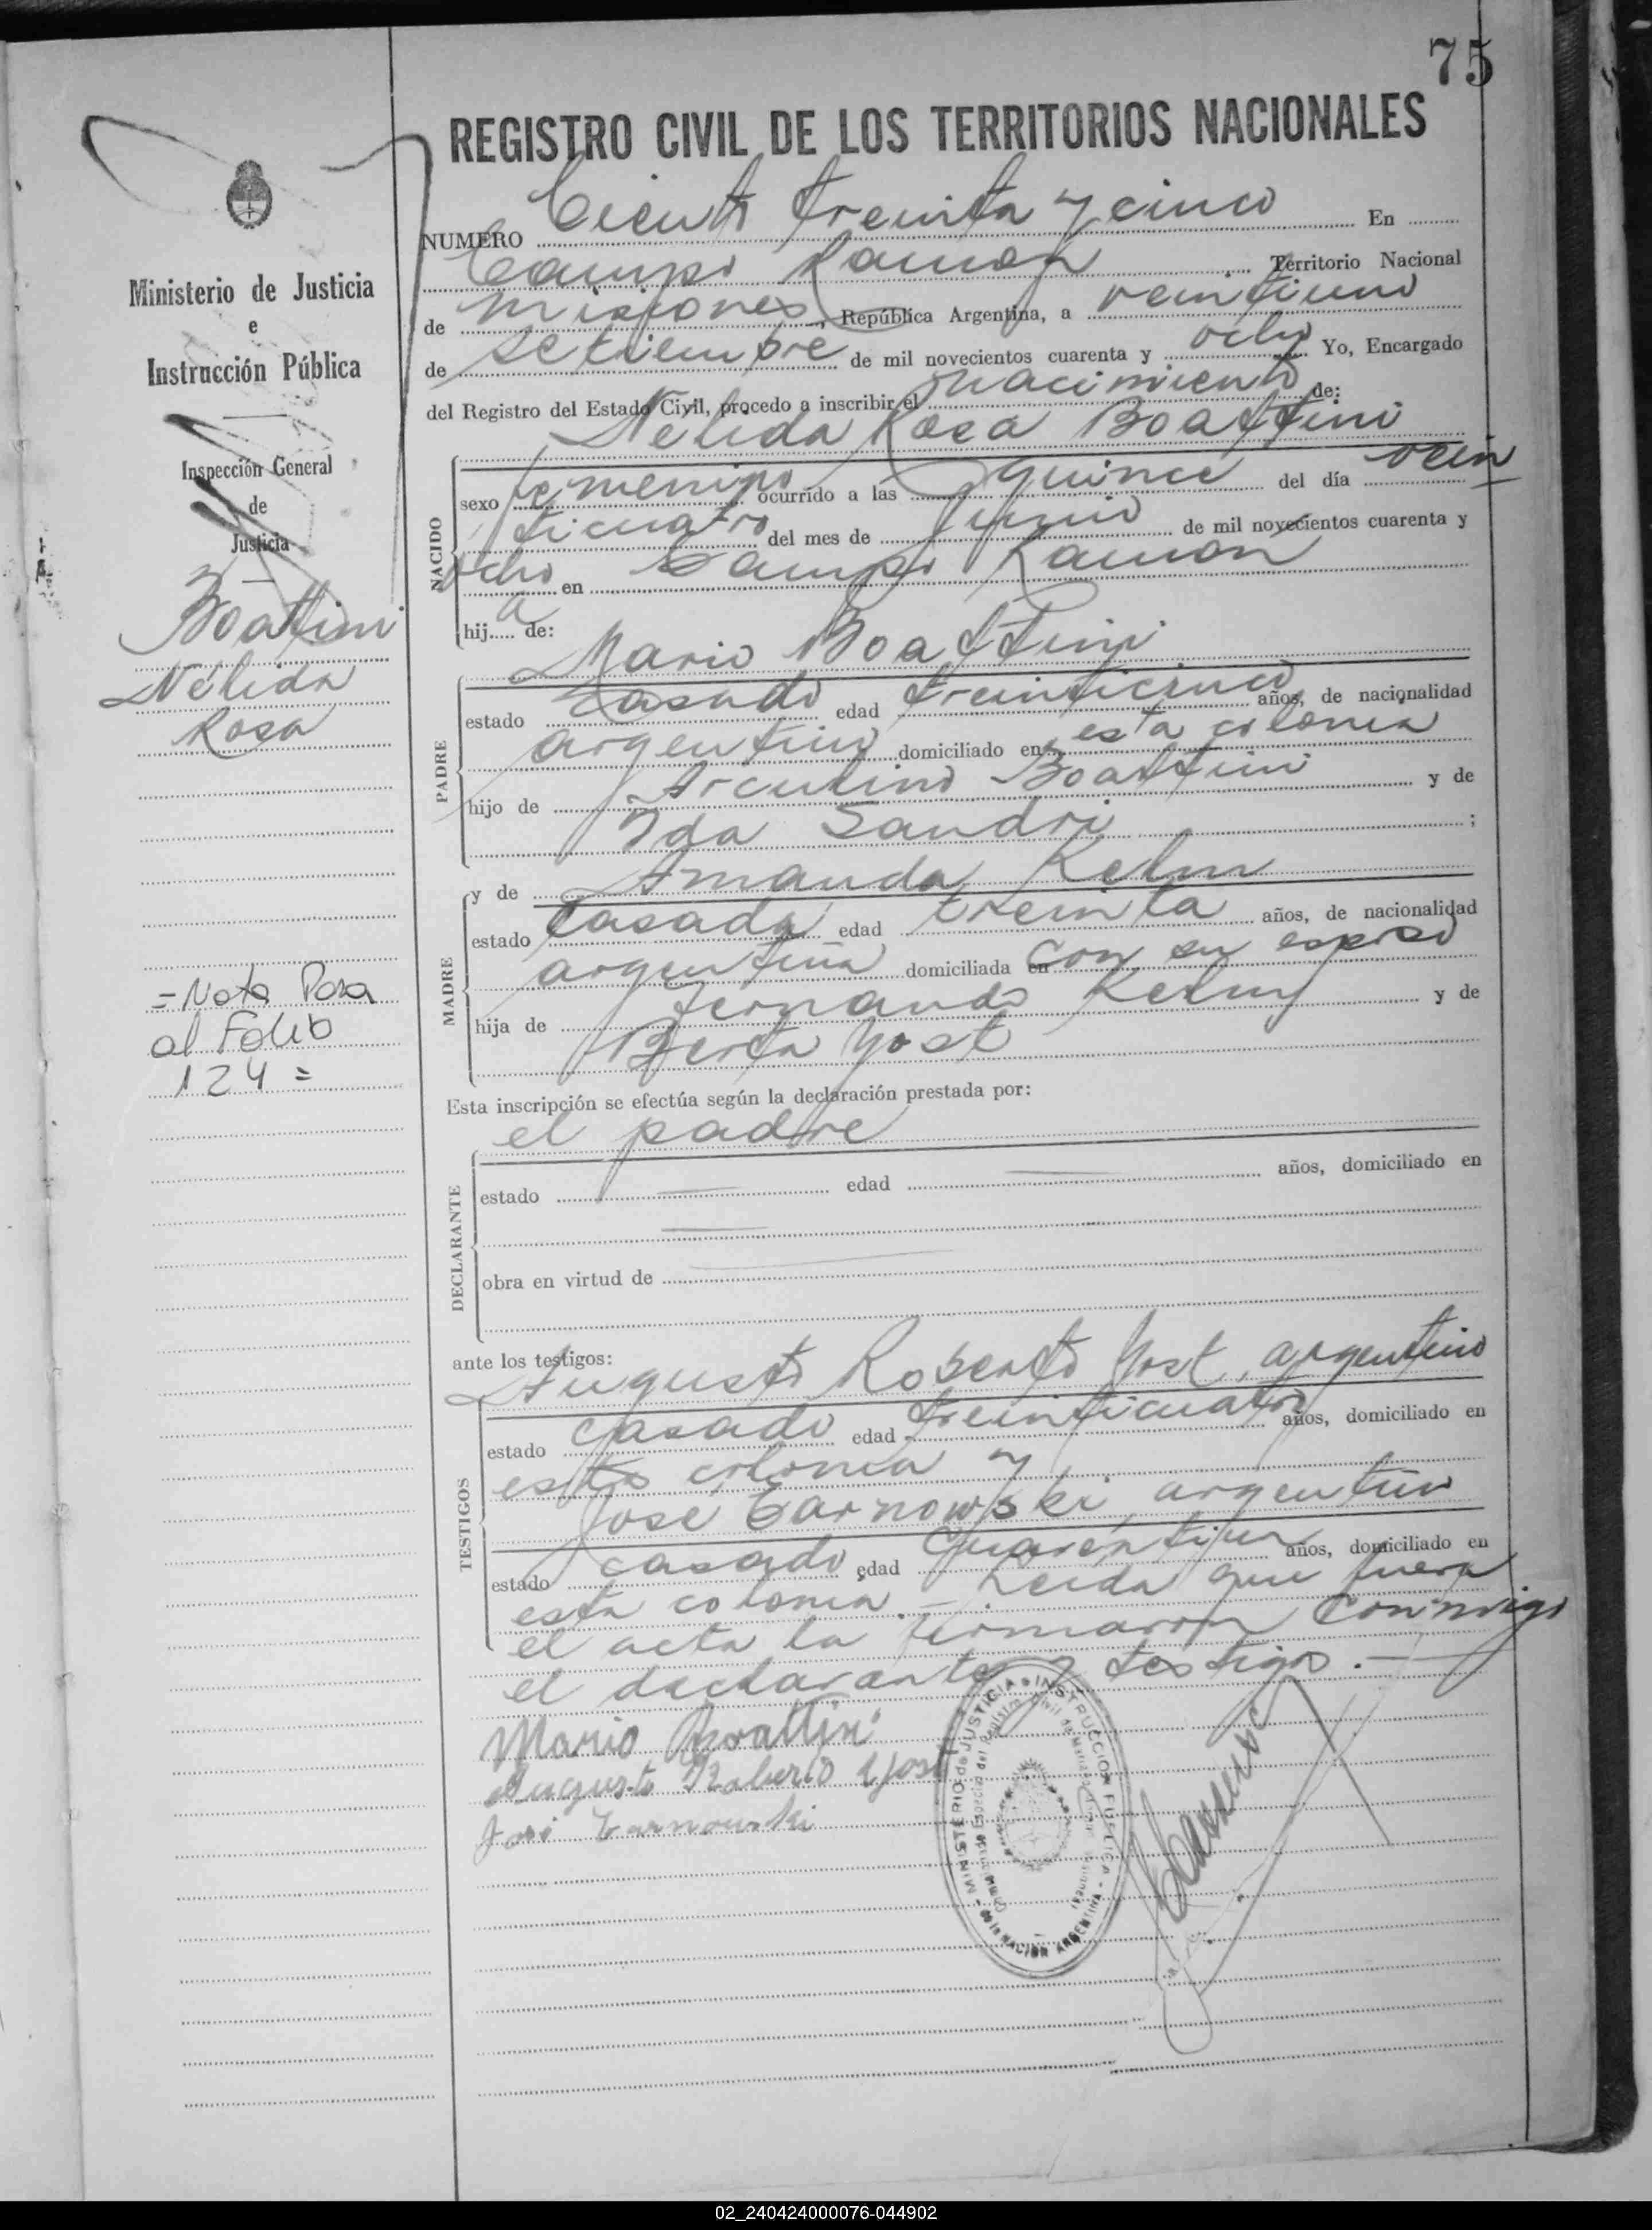 75
REGISTRO CIVIL DE LOS TERRITORIOS NACIONALES
NUMERO Ciento treinta y cinco En
Campo Ramon Territorio Nacional
de Misiones, República Argentina, a veintiuno
de setiembre de mil novecientos cuarenta y ocho Yo, Encargado
del Registro del Estado Civil, procedo a inscribir el nacimiento de:
Nélida Rosa Boattini
NACIDO
sexo femenino ocurrido a las quince del día vein
ticuatro del mes de junio de mil novecientos cuarenta y
ocho en Campo Ramon
hija de:
Mario Boattini
PADRE
estado casado edad treinticinco años, de nacionalidad
argentino domiciliado en esta colonia
hijo de Arculino Boattini y de
Ida Sandri ;
MADRE
y de Amanda Kelm
estado casada edad treinta años, de nacionalidad
argentina domiciliada en con su esposo
hija de Fernando Kelm y de
Berta Yost
Esta inscripción se efectúa según la declaración prestada por:
el padre
DECLARANTE
estado edad años, domiciliado en
obra en virtud de
ante los testigos:
Augusto Roberto Yost, argentino
TESTIGOS
estado casado edad treinticuatro años, domiciliado en
esta colonia y
José Tarnowski argentino
estado casado edad años, domiciliado en
esta colonia.- Leida que fuera
el acta la firmaron conmigo
el declarante y testigos.-
Mario Boattini
Augusto Roberto Yost
José Tarnowski
MINISTERIO de JUSTICIA e INSTRUCCION PUBLICA
de la NACION ARGENTINA
Ministerio de Justicia
e
Instrucción Pública
Inspección General
de
Justicia
Boattini
Nélida
Rosa
=Nota Pasa
al Folio
124=
02_240424000076-044902